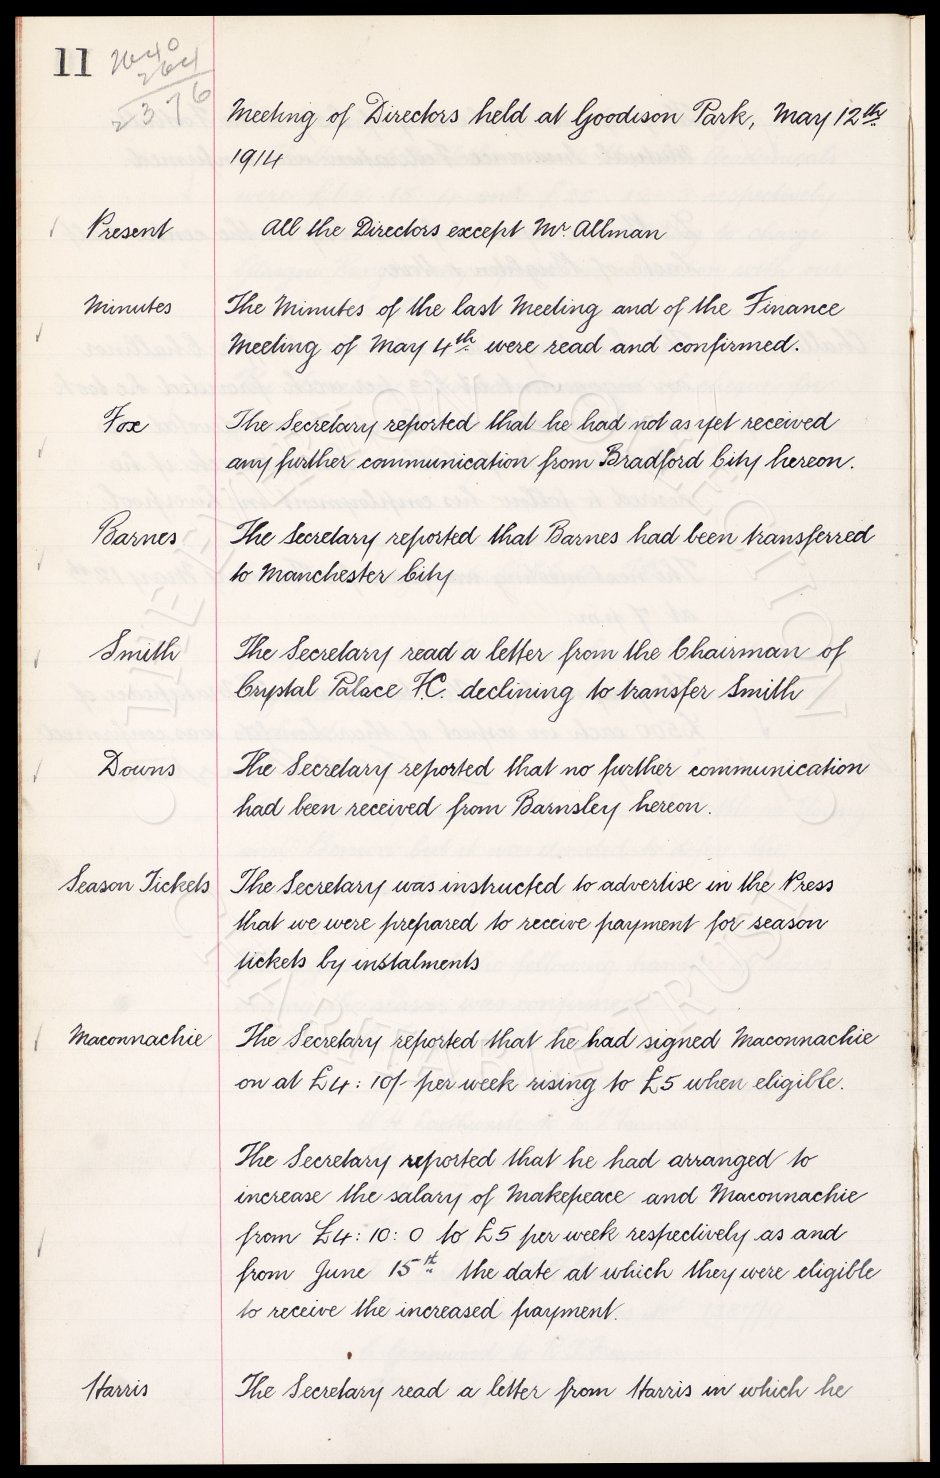 11
2640
264
2376
Meeting of Directors held at Goodison Park, May 12th
1914
Present All the Directors except Mr. Allman
Minutes The Minutes of the last Meeting and of the Finance
Meeting of May 4th were read and confirmed.
Fox The Secretary reported that he had not as yet received
any further communication from Bradford City hereon.
Barnes The Secretary reported that Barnes had been transferred
to Manchester City
Smith The Secretary read a letter from the Chairman of
Crystal Palace F.C. declining to transfer Smith
Downs The Secretary reported that no further communication
had been received from Barnsley hereon.
Season Tickets The Secretary was instructed to advertise in the Press
that we were prepared to receive payment for season
tickets by instalments
Maconnachie The Secretary reported that he had signed Maconnachie
on at £4:10/- per week rising to £5 when eligible.
The Secretary reported that he had arranged to
increase the salary of Makepeace and Maconnachie
from £4:10:0 to £5 per week respectively as and
from June 15th the date at which they were eligible
to receive the increased payment.
Harris The Secretary read a letter from Harris in which he